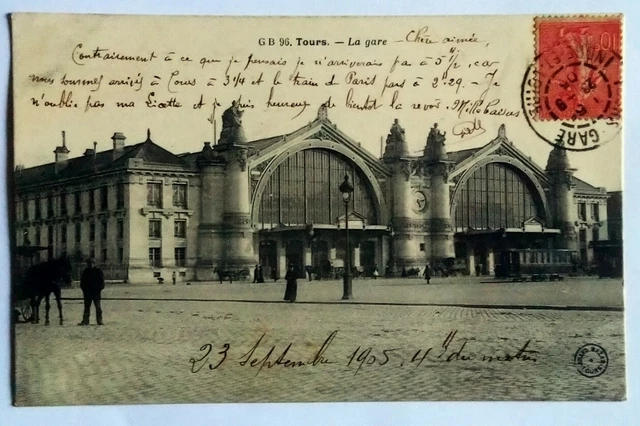 GB 96. Tours. — La gare
Chère aimée,
Contrairement à ce que je pensais je n'arriverais pas à 5h ½, car
nous sommes arrivés à Tours à 3h ¼ et le train de Paris part à 2h 29. — Je
n'oublie pas ma Lisette et je suis heureux de bientôt la revoir. Mille baisers
10
GARE
23 Septembre 1905. 4h du matin
GRAND BAZAR
TOURS